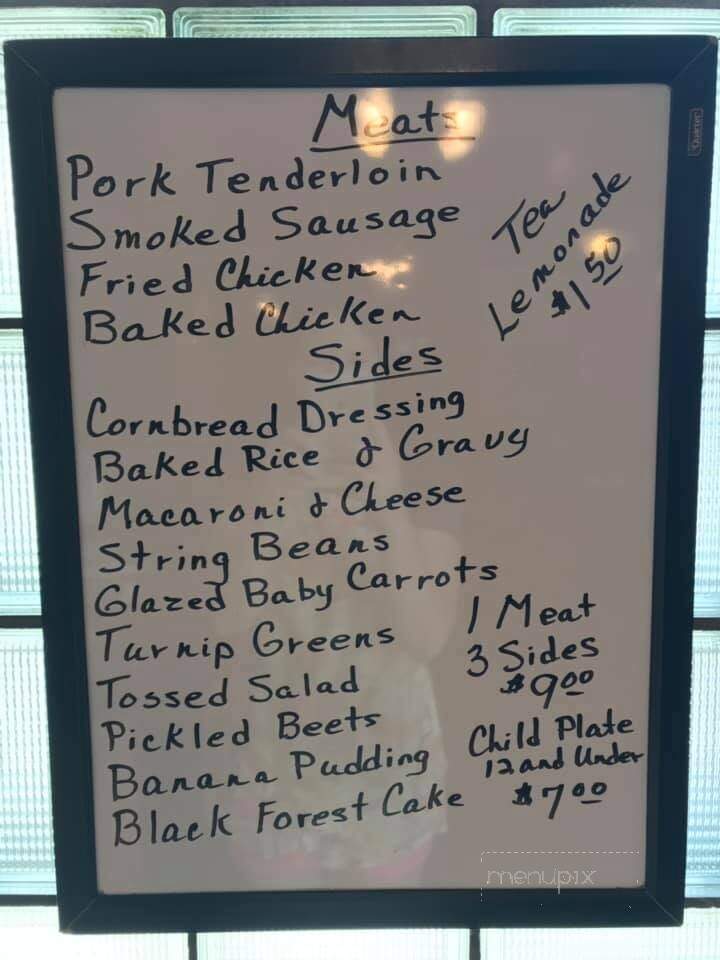 Meats
Pork Tenderloin
Smoked Sausage
Fried Chicken
Baked Chicken
Tea
Lemonade
$1.50
Sides
Cornbread Dressing
Baked Rice & Gravy
Macaroni & Cheese
String Beans
Glazed Baby Carrots
Turnip Greens
Tossed Salad
Pickled Beets
Banana Pudding
Black Forest Cake
1 Meat
3 Sides
$9.00
Child Plate
12 and Under
$7.00
Quartet
menupix